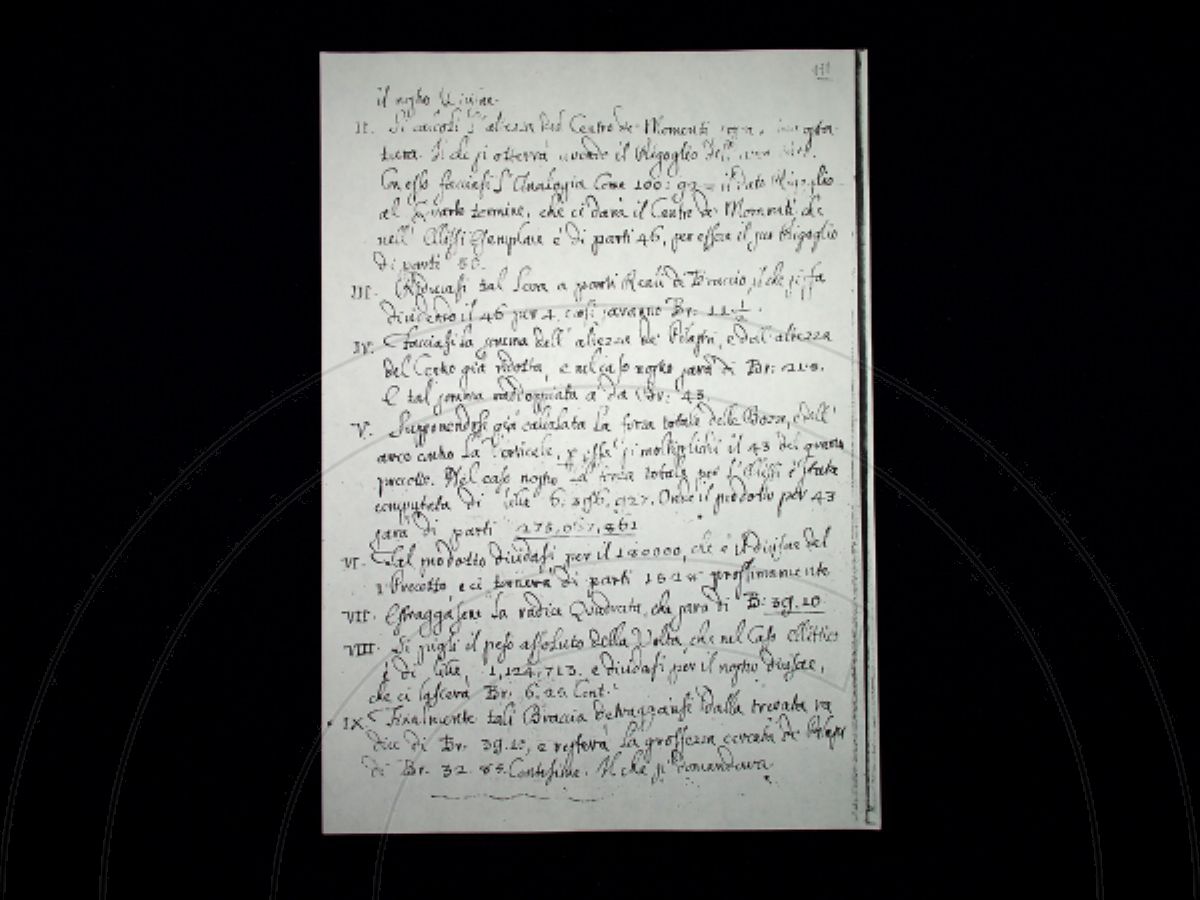 111
il nostro
II. Si calcoli l'altezza del Centro de' Momenti
tura. Il che si otterrà avendo il Rigoglio
Con esso facciasi l'Analogia Come 100: 92 = il dato Rigoglio
al Quarto termine, che ci darà il Centro de' Momenti che
nell' Ellissi Esemplare è di parti 46, per essere il suo Rigoglio
di parti 50.
III. Riducasi tal Leva a parti Reali di Braccio, il che si fa
dividendo il 46 per 4, così saranno Br: 11 1/2.
IV. Facciasi la somma dell' altezza de' Pilastri, e dell' altezza
del Centro già ridotta, e nel caso nostro sarà di Br: 21.5.
E tal somma radd̄oppiata a da Br: 43.
V. Supponendosi già calcolata la forza totale delle Bozze, e dell'
arco contro la Verticale, p essa si moltiplichi il 43 del quarto
precetto. Nel caso nostro la forza totale per l'Elissi è stata
computata di 6: 396, 927. Onde il prodotto per 43
sarà di parti 275,067,861
VI. Tal prodotto dividasi per il 180000, che è il divisore del
1° Precetto, e ci tornerà di parti 1528 prossimamente
VII. Estraggasene la radice Quadrata, che sarà di B: 39.10
VIII. Si pigli il peso assoluto della Volta, che nel Caso ellittico
è di 1,124,713. e dividasi per il nostro divisore,
che ci lascerà Br: 6.25 Cent.
IX. Finalmente tali Braccia detraggansi dalla trovata ra
dice di Br. 39.10, e resterà la grossezza cercata de' Pilastri
di Br. 32.85 Centesime. Il che si domandava.